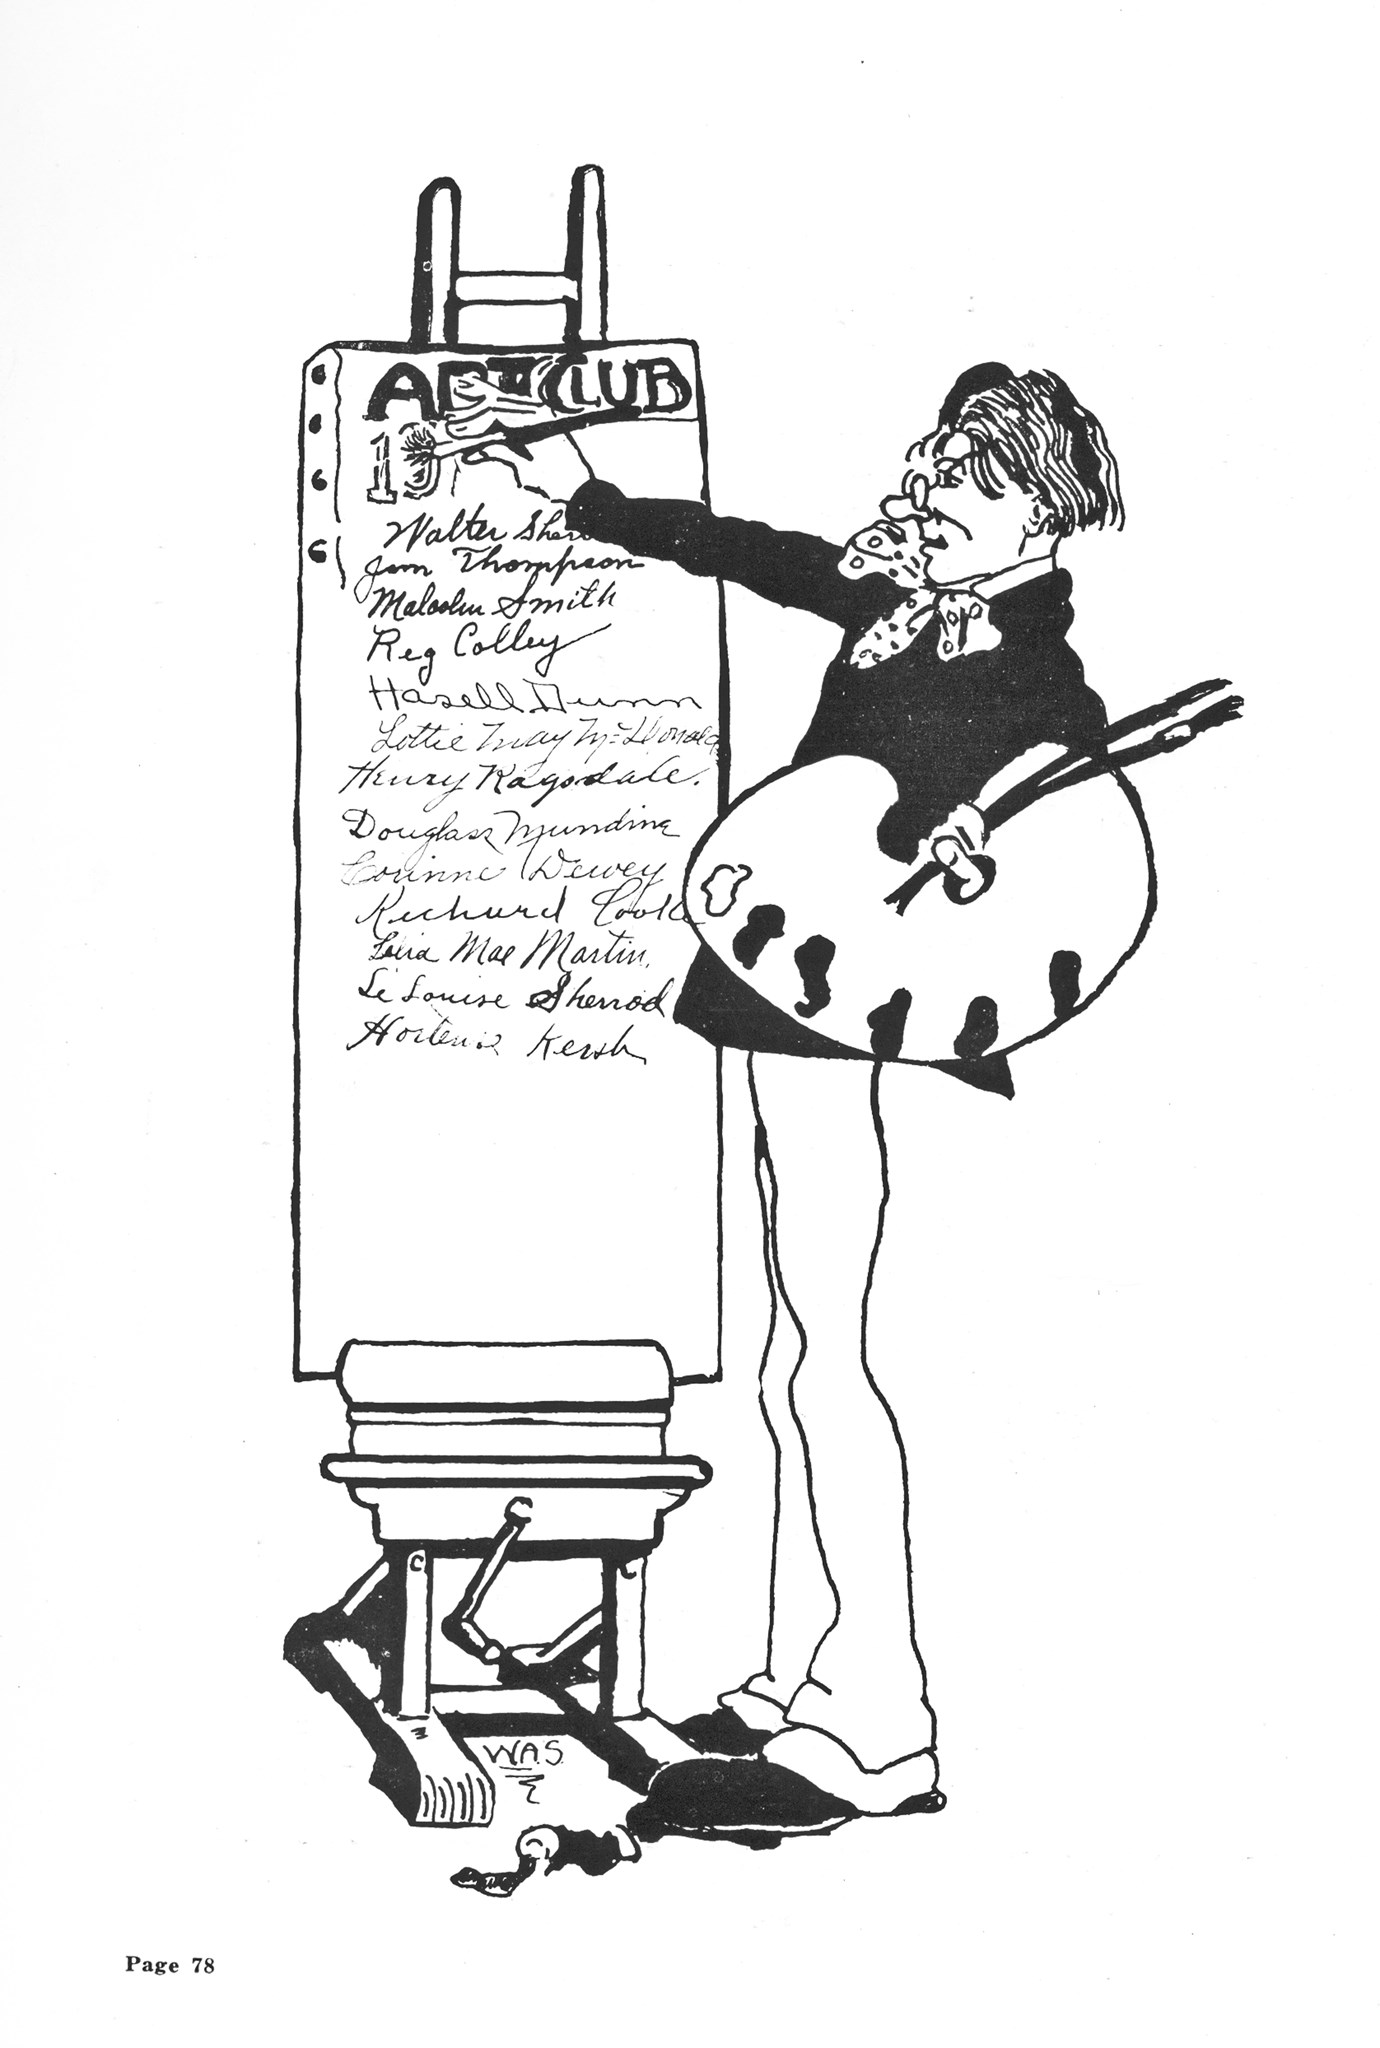 ART CLUB
19
Walter
Jim Thompson
Malcolm Smith
Reg Colley
Hasell Dunn
Lottie May McDonald
Henry Ragsdale.
Douglass Mundine
Corinne Dewey
Richard Cooke
Mae Martin.
Le Louise Sherrod
Hortense Kersh
W.A.S.
Page 78